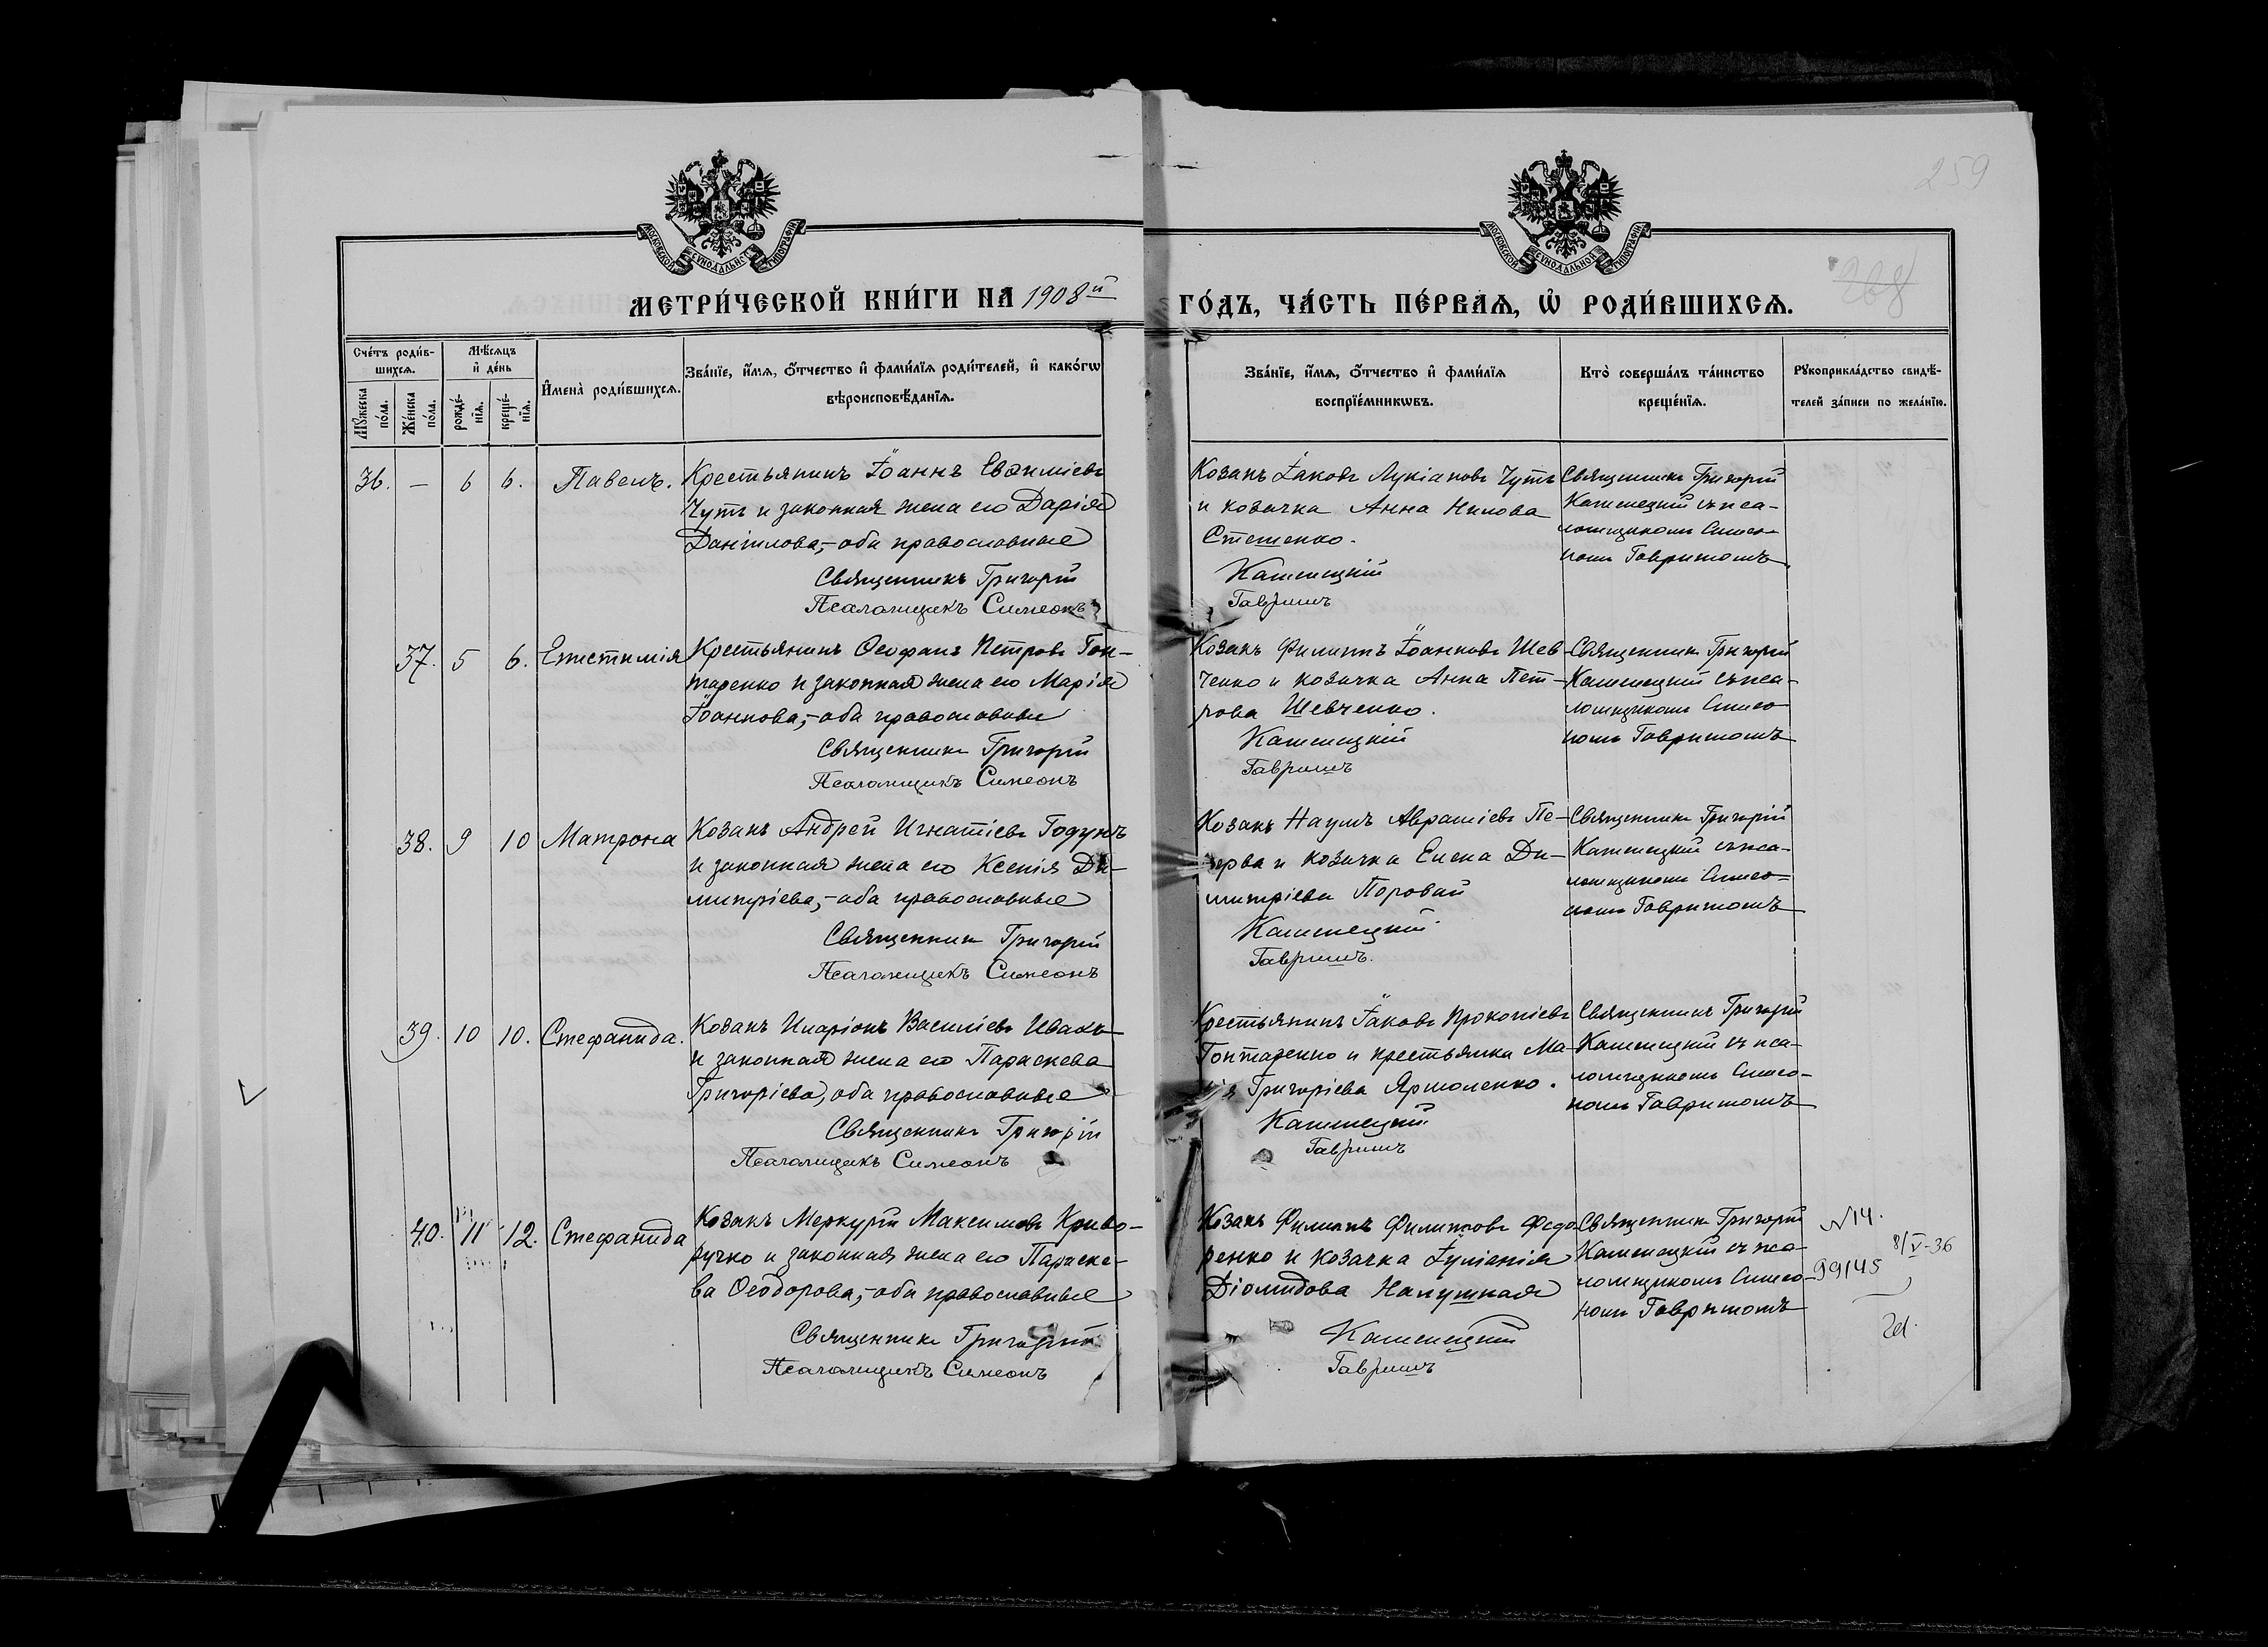 259
268
МОСКОВСКОЙ СѴНОДАЛЬНОЙ ТИПОГРАФІИ
МОСКОВСКОЙ СѴНОДАЛЬНОЙ ТИПОГРАФІИ
МЕТРИ́ЧЕСКОЙ КНИ́ГИ НА 1908й
ГО́ДЪ, ЧА́СТЬ ПЕ́РВАѦ, Ѡ҆ РОДИ́ВШИХСѦ.
Сче́тъ роди́в-
шихсѧ.
Мѣ́сѧцъ
и҆ де́нь
Мꙋ́жеска
по́ла.
Же́нска
по́ла.
рожде́-
нїѧ.
креще́-
нїѧ.
И҆мена̀ роди́вшихсѧ.
Зва́нїе, и҆́мѧ, ѻ҆́тчество и҆ фами́лїѧ роди́телей, и҆ како́гѡ
вѣроисповѣ́данїѧ.
Зва́нїе, и҆́мѧ, ѻ҆́тчество и҆ фами́лїѧ
воспрїе́мникѡвъ.
Кто̀ соверша́лъ та́инство
креще́нїѧ.
Рꙋкоприкла́дство свидѣ́-
телей за́писи по жела́нїю.
36. — 6 6. Павелъ.
Крестьянинъ Іоаннъ Евѳиміевъ
Чутъ и законная жена его Дарія
Даніилова,-оба православные
Священникъ Григорій
Псаломщикъ Симеонъ
Козакъ Іаковъ Лукіановъ Чутъ
и козачка Анна Нилова
Стешенко.
Каменецкій
Гавришъ
Священникъ Григорій
Каменецкій съ пса-
ломщикомъ Симео-
номъ Гавришомъ
37. 5 6. Епистимія
Крестьянинъ Ѳеофанъ Петровъ Гон-
таренко и законная жена его Марія
Іоаннова,-оба православные
Священникъ Григорій
Псаломщикъ Симеонъ
Козакъ Филиппъ Іоанновъ Шев-
ченко и козачка Анна Пет-
рова Шевченко.
Каменецкій
Гавришъ
Священникъ Григорій
Каменецкій съ пса-
ломщикомъ Симео-
номъ Гавришомъ
38. 9 10 Матрона
Козакъ Андрей Игнатіевъ Годунъ
и законная жена его Ксенія Ди-
митріева,-оба православные
Священникъ Григорій
Псаломщикъ Симеонъ
Козакъ Наумъ Авраміевъ Пе-
и козачка Елена Ди-
митріева
Каменецкій
Гавришъ.
Священникъ Григорій
Каменецкій съ пса-
ломщикомъ Симео-
номъ Гавришомъ
39. 10 10. Стефанида.
Козакъ Иларіонъ Василіевъ
и законная жена его Параскева
Григоріева, оба православные
Священникъ Григорій
Псаломщикъ Симеонъ
Крестьянинъ Іаковъ Прокопіевъ
Гонтаренко и крестьянка Ма-
рія Григоріева Ярмоленко.
Каменецкій
Гавришъ
Священникъ Григорій
Каменецкій съ пса-
ломщикомъ Симео-
номъ Гавришомъ
40. 11 12. Стефанида
Козакъ Меркурій Максимовъ Криво-
ручко и законная жена его Параске-
ва Ѳеодорова,-оба православные
Священникъ Григорій
Псаломщикъ Симеонъ
Козакъ Филиппъ Филипповъ Федо-
ренко и козачка Іуліанія
Діомидова Напушная
Каменецкій
Гавришъ
Священникъ Григорій
Каменецкій съ пса-
ломщикомъ Симео-
номъ Гавришомъ
№14.
8/V-36
99145